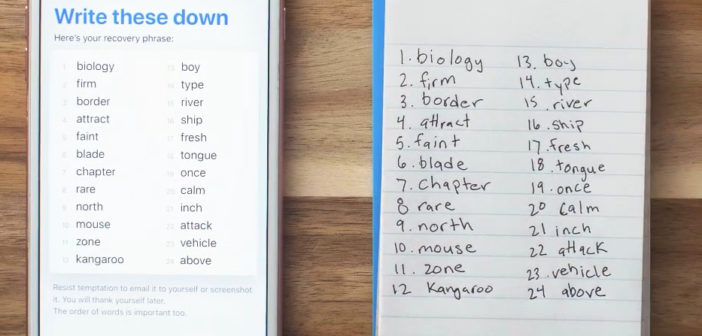 Write these down
Here's your recovery phrase:
1 biology
2 firm
3 border
4 attract
5 faint
6 blade
7 chapter
8 rare
9 north
10 mouse
11 zone
12 kangaroo
13 boy
14 type
15 river
16 ship
17 fresh
18 tongue
19 once
20 calm
21 inch
22 attack
23 vehicle
24 above
Resist temptation to email it to yourself or screenshot
it. You will thank yourself later.
The order of words is important too.
1. biology
2. firm
3. border
4. attract
5. faint
6. blade
7. chapter
8 rare
9. north
10. mouse
11. zone
12 Kangaroo
13. boy
14. type
15 .river
16 .ship
17 .fresh
18 .tongue
19 .once
20 Calm
21 inch
22 attack
23 .vehicle
24 above